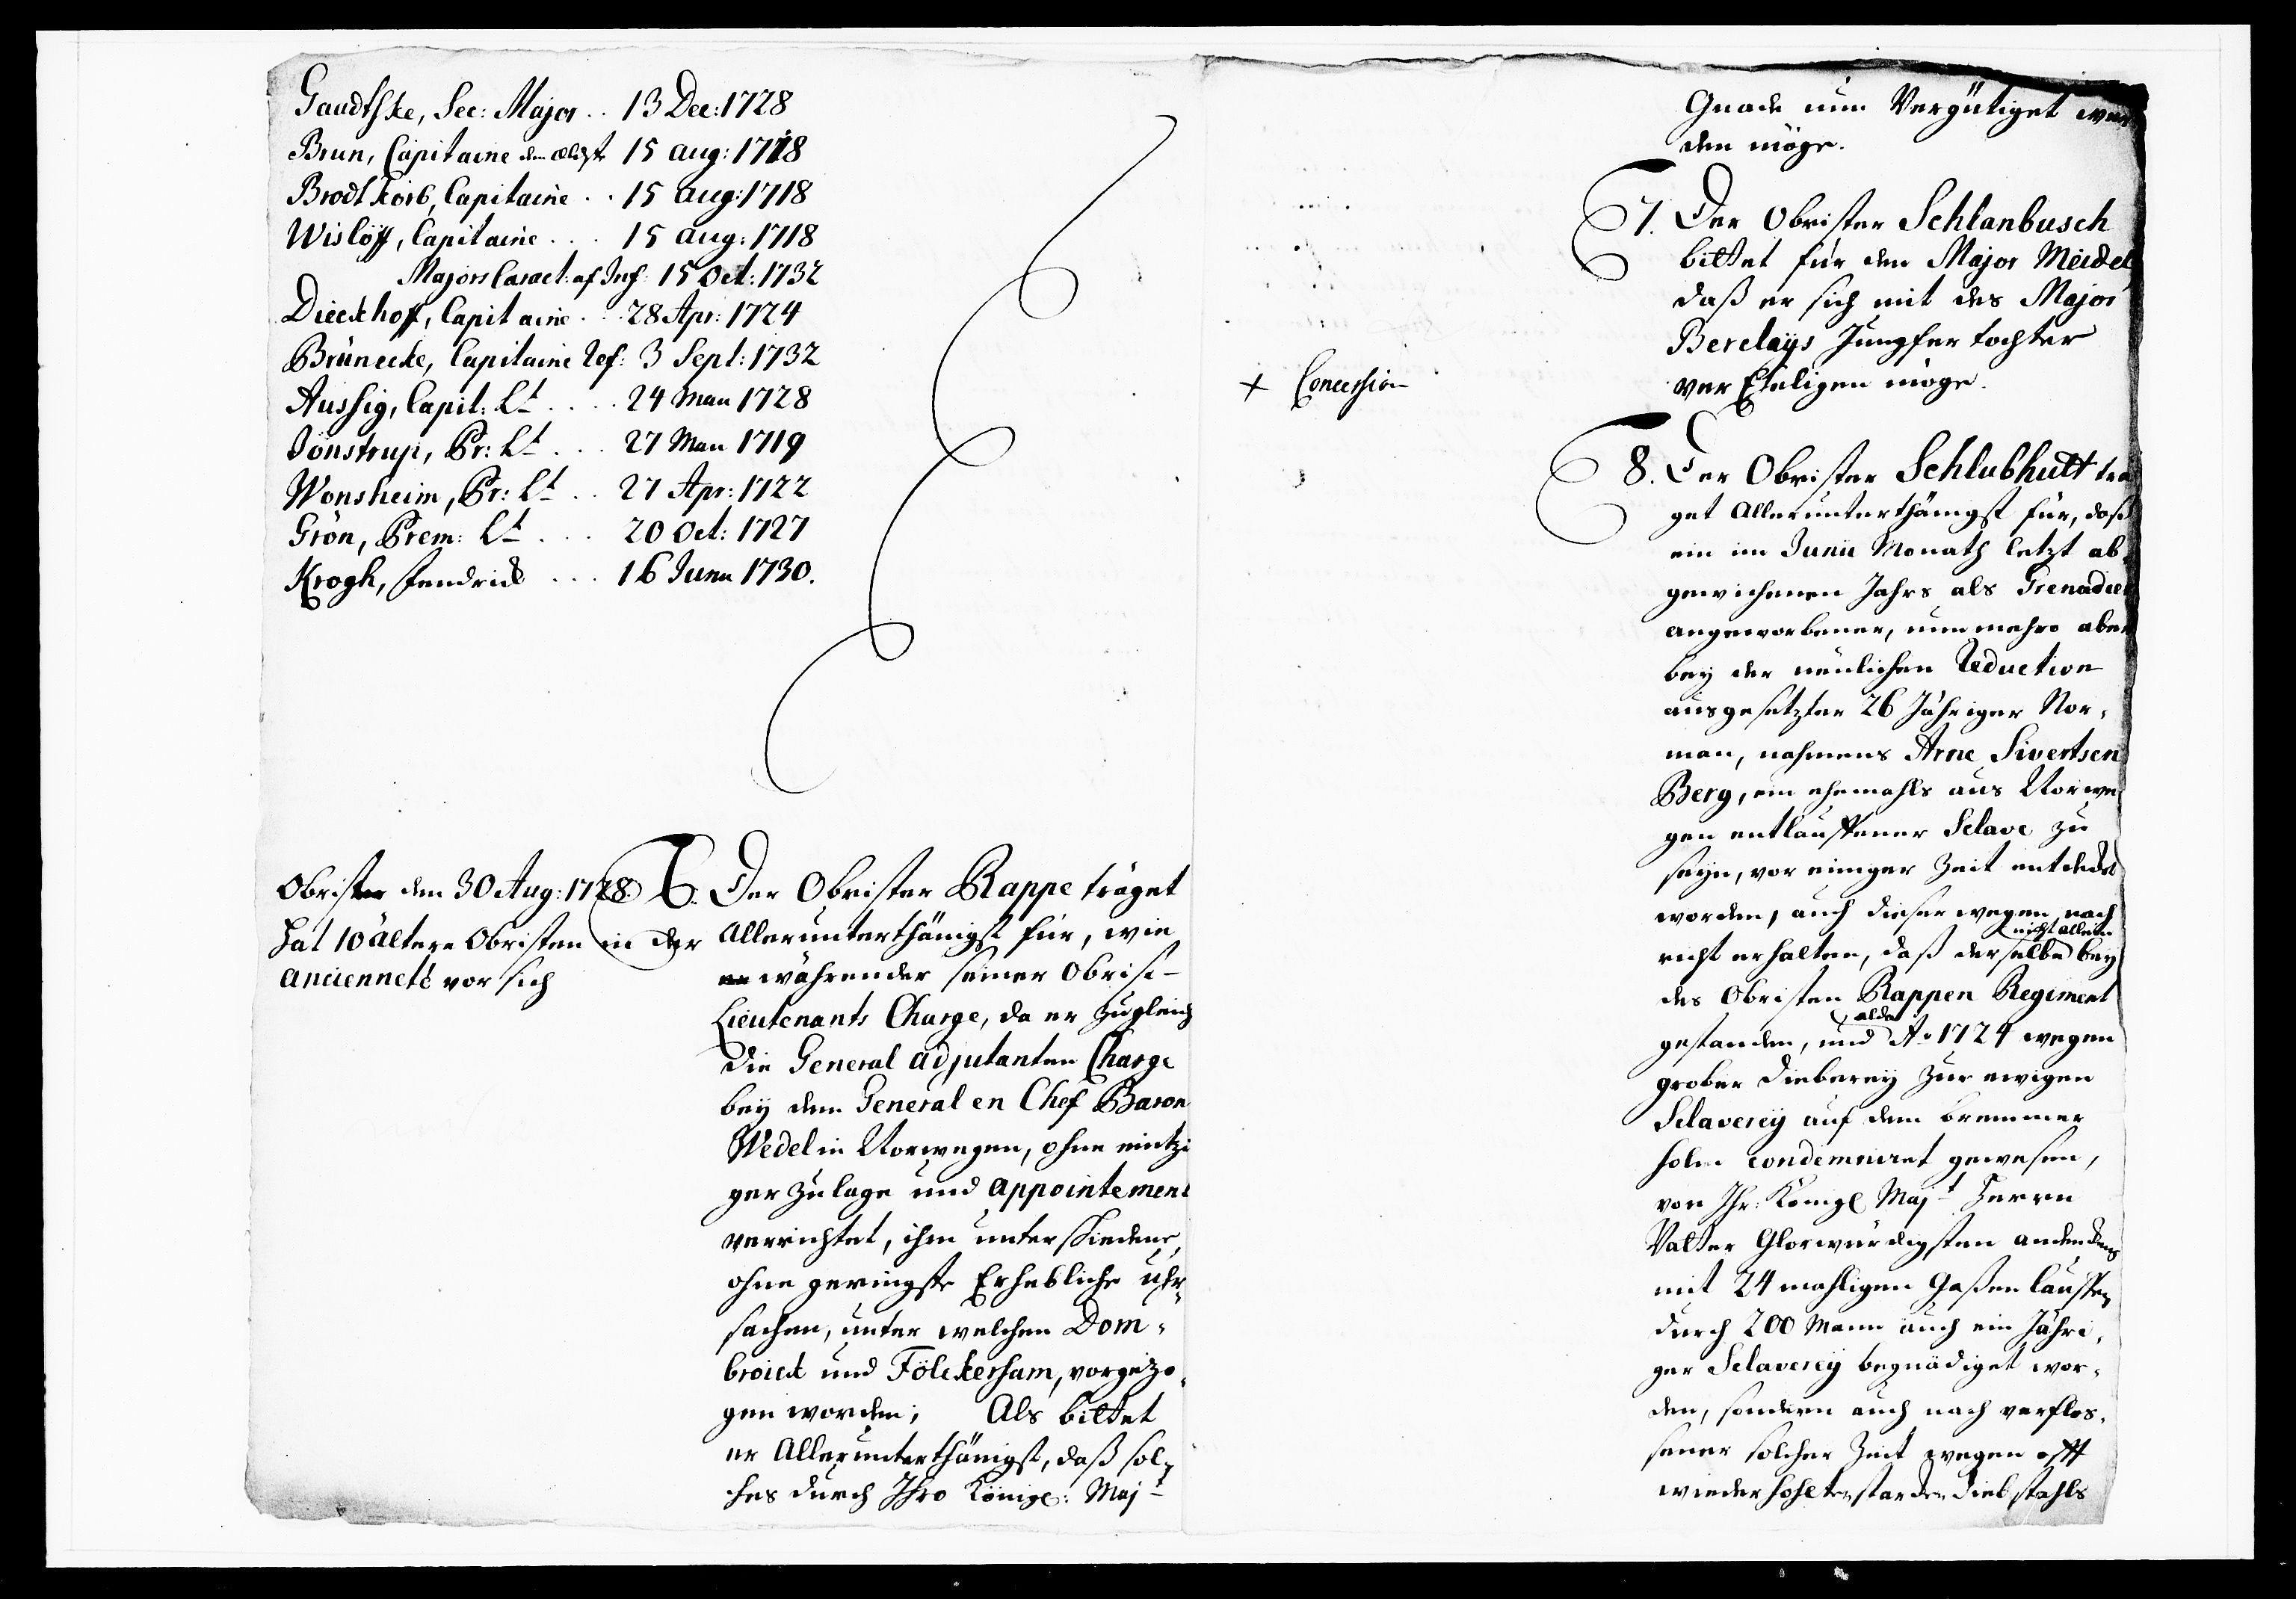 Gaudtske, Sec: Major . . 13 Dec: 1728
Brun, Capitaine den ældste 15 Aug: 1718
Brodtkorb, Capitaine . . 15 Aug: 1718
Wislöff, Capitaine . . . 15 Aug: 1718
Majors Caract: af Inf: 15 Oct: 1732
Dieckhoff, Capitaine . . 28 Apr: 1724
Brünecke, Capitaine Ref: 3 Sept: 1732
Aussig, Capit: Lt . . . . 24 Man 1728
Jönstrup, Pr: Lt . . . 27 Man 1719
Wonsheim, Pr: Lt . . 27 Apr: 1722
Grön, Prem: Lt . . . 20 Oct: 1727
Krogh, Fendrick . . . 16 Junii 1730.
Obrister den 30 Aug: 1728.
hat 10 ältere Obristen in der
ancienneté vor sich
6. Der Obrister Rappe träget
Allerunterthänigst für, wie
währender seiner Obrist-
Lieutenants Charge, da er zugleich
die General adjutanten Charge
bey dem General en Chef Baron
Wedel in Norwegen, ohne eintzi
ger Zulage und appointement
verrichtet, ihm unterschiedene,
ohne geringste Erhebliche Uhr-
sachen, unter welchen Dom-
broick und Fölckersham, vorgezo-
gen worden; Als bittet
er Allerunterthänigst, daß sol-
ches durch Ihro Königl: Majt
Gnade nun Vergütiget wer
den möge.
7. Der Obrister Schlanbusch
bittet für den Major Meidel
daß er sich mit des Major
Berclays Jungfer tochter
ver Eheligen möge.
+ Concession
8. Der Obrister Schlubhutt trä
get Allerunterthänigst für, daß
ein im Junii Monath letzt ab-
gewichenen Jahrs als Grenadier
angeworbener, nunmehro aber
bey der neulichen Reduction
ausgesetzter 26 Jähriger Nor-
man, nahmens Arne Sivertsen
Berg, ein ehemahls aus Norwe
gen entlauffener Sclave zu
seyn, vor einiger Zeit entdeckt
worden, auch dieserwegen nach
richt erhalten, daß derselbe nicht allein bey
des Obristen Rappen Regiment
gestanden, und alda Ao 1724 wegen
grober Dieberey zur ewigen
Sclaverey auf dem bremmer
holm condemniret gewesen,
von Ihr: Königl Majt Herrn
Vatter Glorwürdigsten andenckens
mit 24 mahligen Gaßen lauffen
durch 200 Mann auch ein Jähri-
ger Sclaverey begnädiget wor-
den, sondern auch nach verflos-
sener solcher Zeit wegen offt
wiederhohlten starcken diebstahls